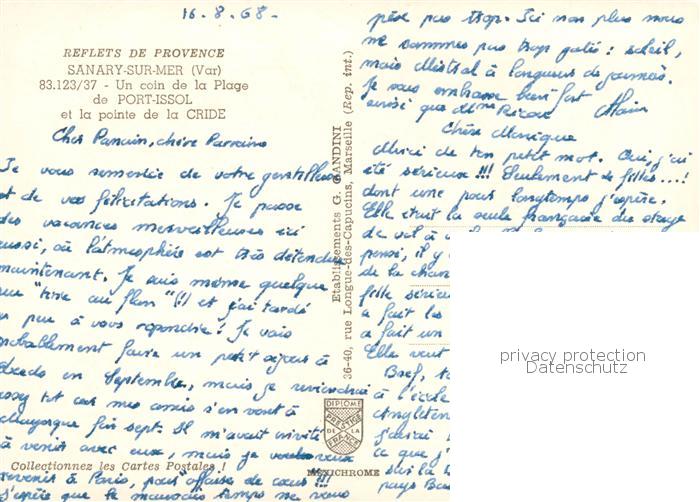 16-8-68-
REFLETS DE PROVENCE
SANARY-SUR-MER (Var)
83.123/37 - Un coin de la Plage
de PORT-ISSOL
et la pointe de la CRIDE
Cher Parrain, chère Marraine
Je vous remercie de votre gentillesse
et de vos félicitations. Je passe
des vacances merveilleuses ici
aussi, où l'atmosphère est très détendue
maintenant. Je suis même quelque
peu "tire au flan" (!) et j'ai tardé
un peu à vous répondre! Je vais
probablement faire un petit séjour à
en Septembre, mais je reviendrai
tôt car mes amis s'en vont à
Majorque fin sept. Il m'avait invité
à venir avec eux, mais je veux
revenir à Paris, pour "affaire de cœur"!!!
J'espère que le mauvais temps ne vous
Collectionnez les Cartes Postales !
Etablissements G. GANDINI
36-40, rue Longue-des-Capucins, Marseille (Rep. int.)
DIPLOME
PRESTIGE
DE LA
FRANCE
MEXICHROME
pèse pas trop. Ici non plus nous
ne sommes pas trop gâtés : soleil,
mais Mistral à longueur de journées.
Je vous embrasse bien fort
ainsi que Mme Alain
Chère Monique
Merci de ton petit mot. Oui, j'ai
été sérieux!!! Seulement 2 filles...!
dont une pour longtemps j'espère.
Elle était la seule française du stage
de vol à
pensi, il y
de la chan
fille sérieu
a fait les
a fait un
Elle veut
Bref, t
à l'école
Angleter
j'aurai
ce que j'
sur la
pays Bas
privacy protection
Datenschutz